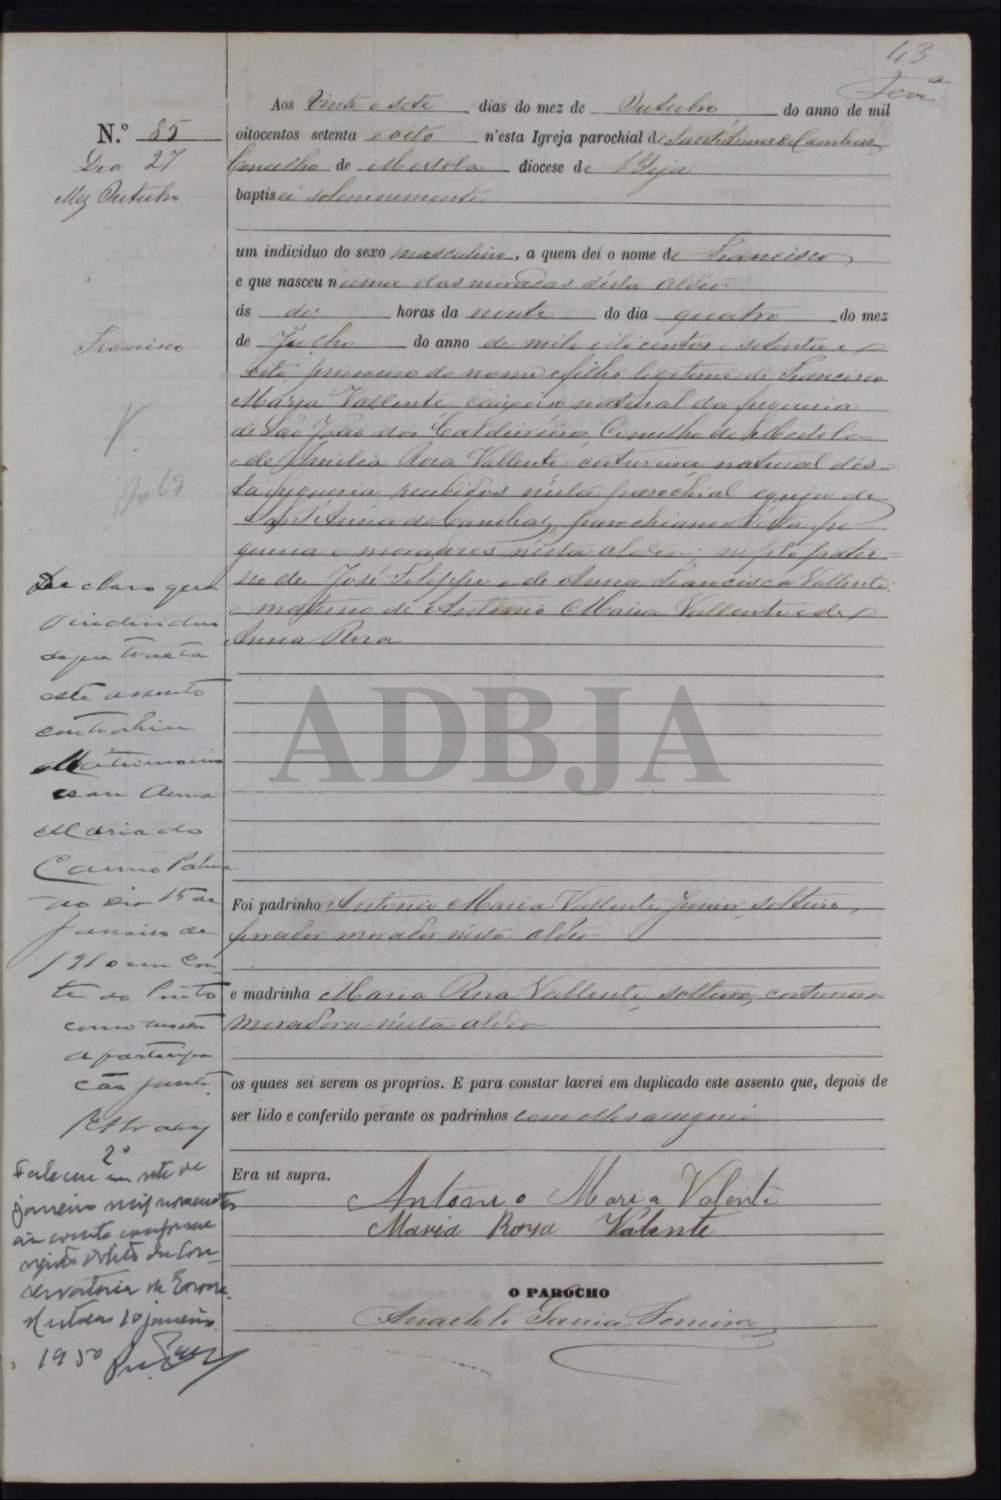 43
N.º 85
Dia 27
Mez Outubro
Francisco
Aos Vinte e sete dias do mez de Outubro do anno de mil
oitocentos setenta e oito n'esta Igreja parochial de Sant'Anna de Cambas
Concelho de Mertola diocese de Beja
baptisei solemnemente
um individuo do sexo masculino, a quem dei o nome de Francisco
e que nasceu n'uma das moradas désta aldeia
ás dez horas da noute do dia quatro do mez
de Julho do anno de mil oito centos e setenta e
oito, primeiro do nome e filho legitimo de Francisco
Maria Vallente, natural da freguesia
de São João dos Caldeireiros, Concelho de Mertola
e de Emilia Rosa Vallente, costureira natural dés-
ta freguesia, recebidos nésta parochial egreja de
Sant'Anna de Cambas, parochianos désta fre
guesia e moradores nésta aldeia: neto pater-
no de José Felippe e de Anna Francisca Vallente
e materno de Antonio Maria Vallente e de
Anna Rosa
Declaro que
o individuo
de que tracta
este assento
contrahiu
Matrimonio
com Anna
Maria do
Carmo Palma
no dia 15 de
Janeiro de
1910 em Cor-
te do Pinto
como consta
a participa
ção junta.
Foi padrinho Antonio Maria Vallente Junior, solteiro,
ferrador morador nésta aldeia
e madrinha Maria Rosa Vallente, solteira, costureira
moradora nésta aldeia
os quaes sei serem os proprios. E para constar lavrei em duplicado este assento que, depois de
ser lido e conferido perante os padrinhos com elles assignei
Era ut supra.
Antonio Maria Valente
Maria Roza Valente
O PAROCHO
Anacleto Garcia Ferreira
2º
Faleceu em sete de
janeiro mil novecentos
cincoenta conforme
registo obito da Con-
servatoria de
10 janeiro
1950
ADBJA